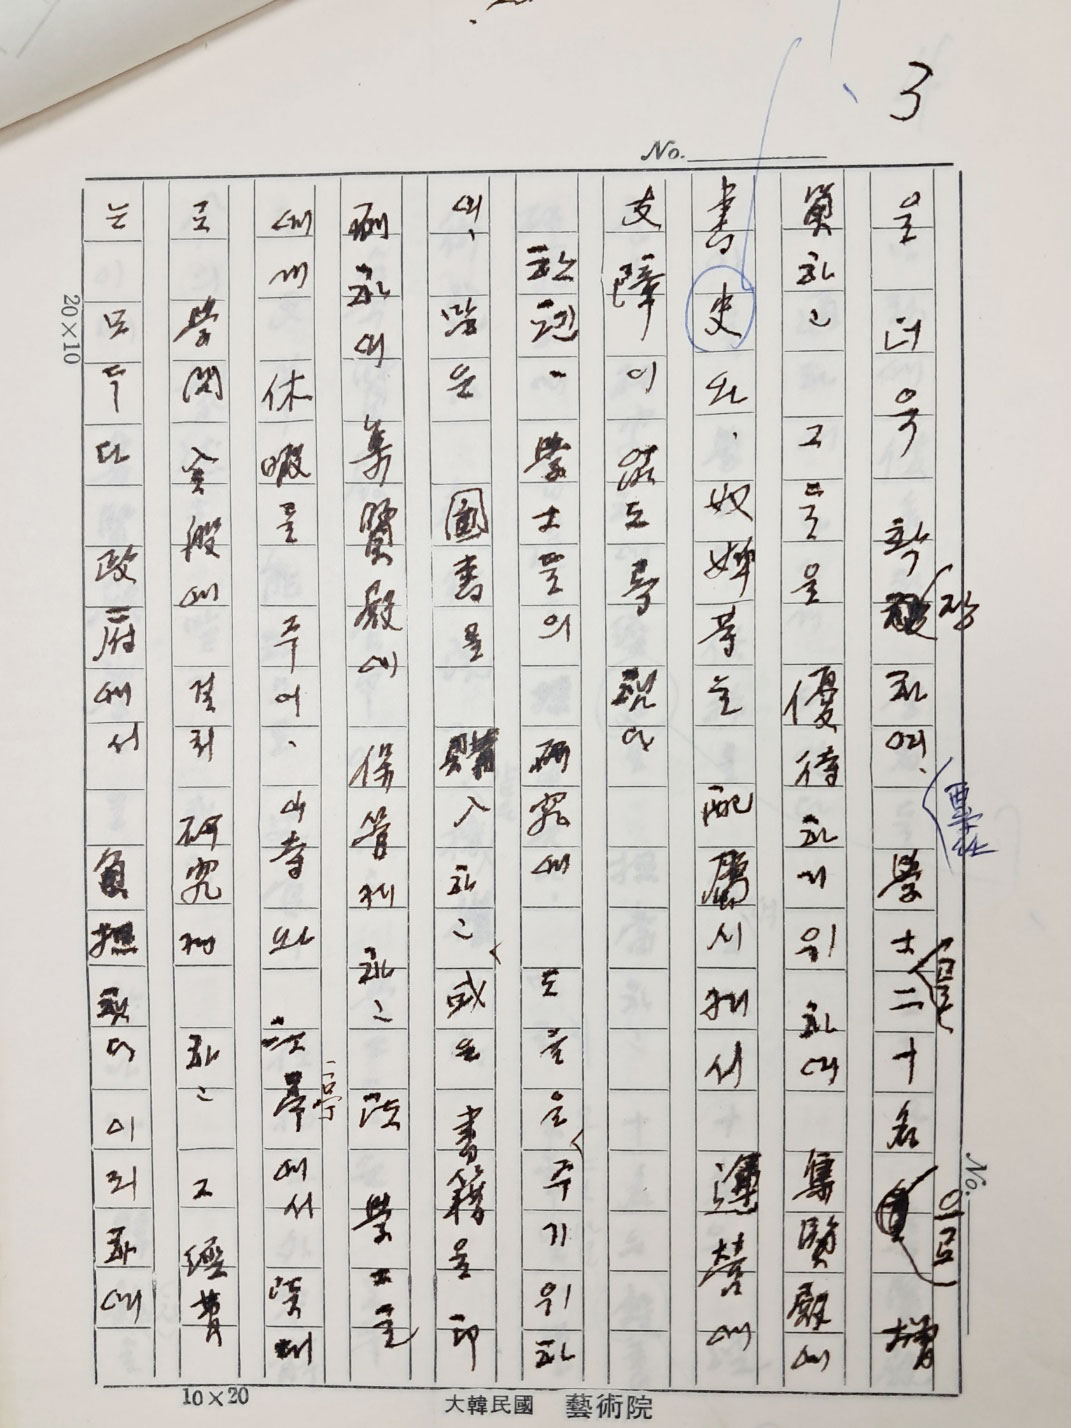 3
No.
을 더욱 확장하여, 學士를 二十名으로 增
員하고 그들을 優待하기 위하여 集賢殿에
書吏와, 奴婢等을 配屬시켜서 運營에
支障이 없도록 하였
하였고 學士들의 研究에 도움을 주기 위하
여, 많은 圖書를 購入하고 或은 書籍을 印
刷하여 集賢殿에 保管케 하고 學士들
에게 休暇를 주어, 山寺와 亭에서 讀書
로 學問全般에 걸쳐 研究케 하고 그 經費
는 모두 다 政府에서 負擔하였 이리하여
20×10
No.
10×20
大韓民國 藝術院